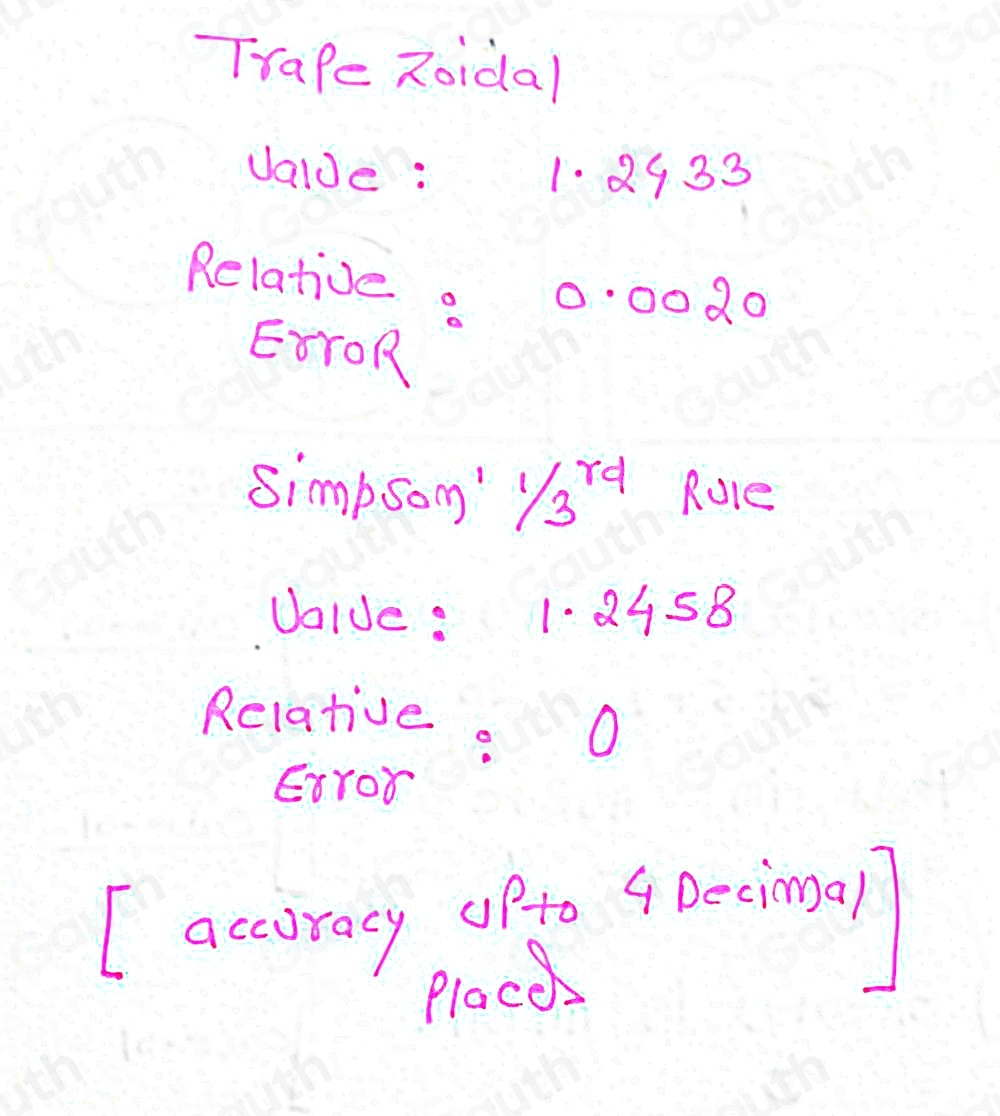 Trapezoidal
Value : 1.2433
Relative Error : 0.0020
Simpson' 1/3rd Rule
Value : 1.2458
Relative Error : 0
[ accuracy upto 4 Decimal Places ]
Gauth